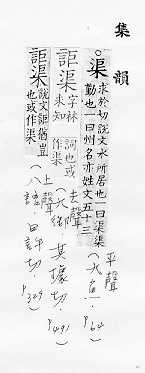 集韻
○渠 求於切說文水所居也一曰渠渠勤也一曰州名亦姓文五十三
平聲(九魚) P.64
詎渠 字林未知詞也或作渠
去聲(九御) 其據切 P.491
詎渠 說文詎猶豈也或作渠
上聲(八語) 臼許切 P.329